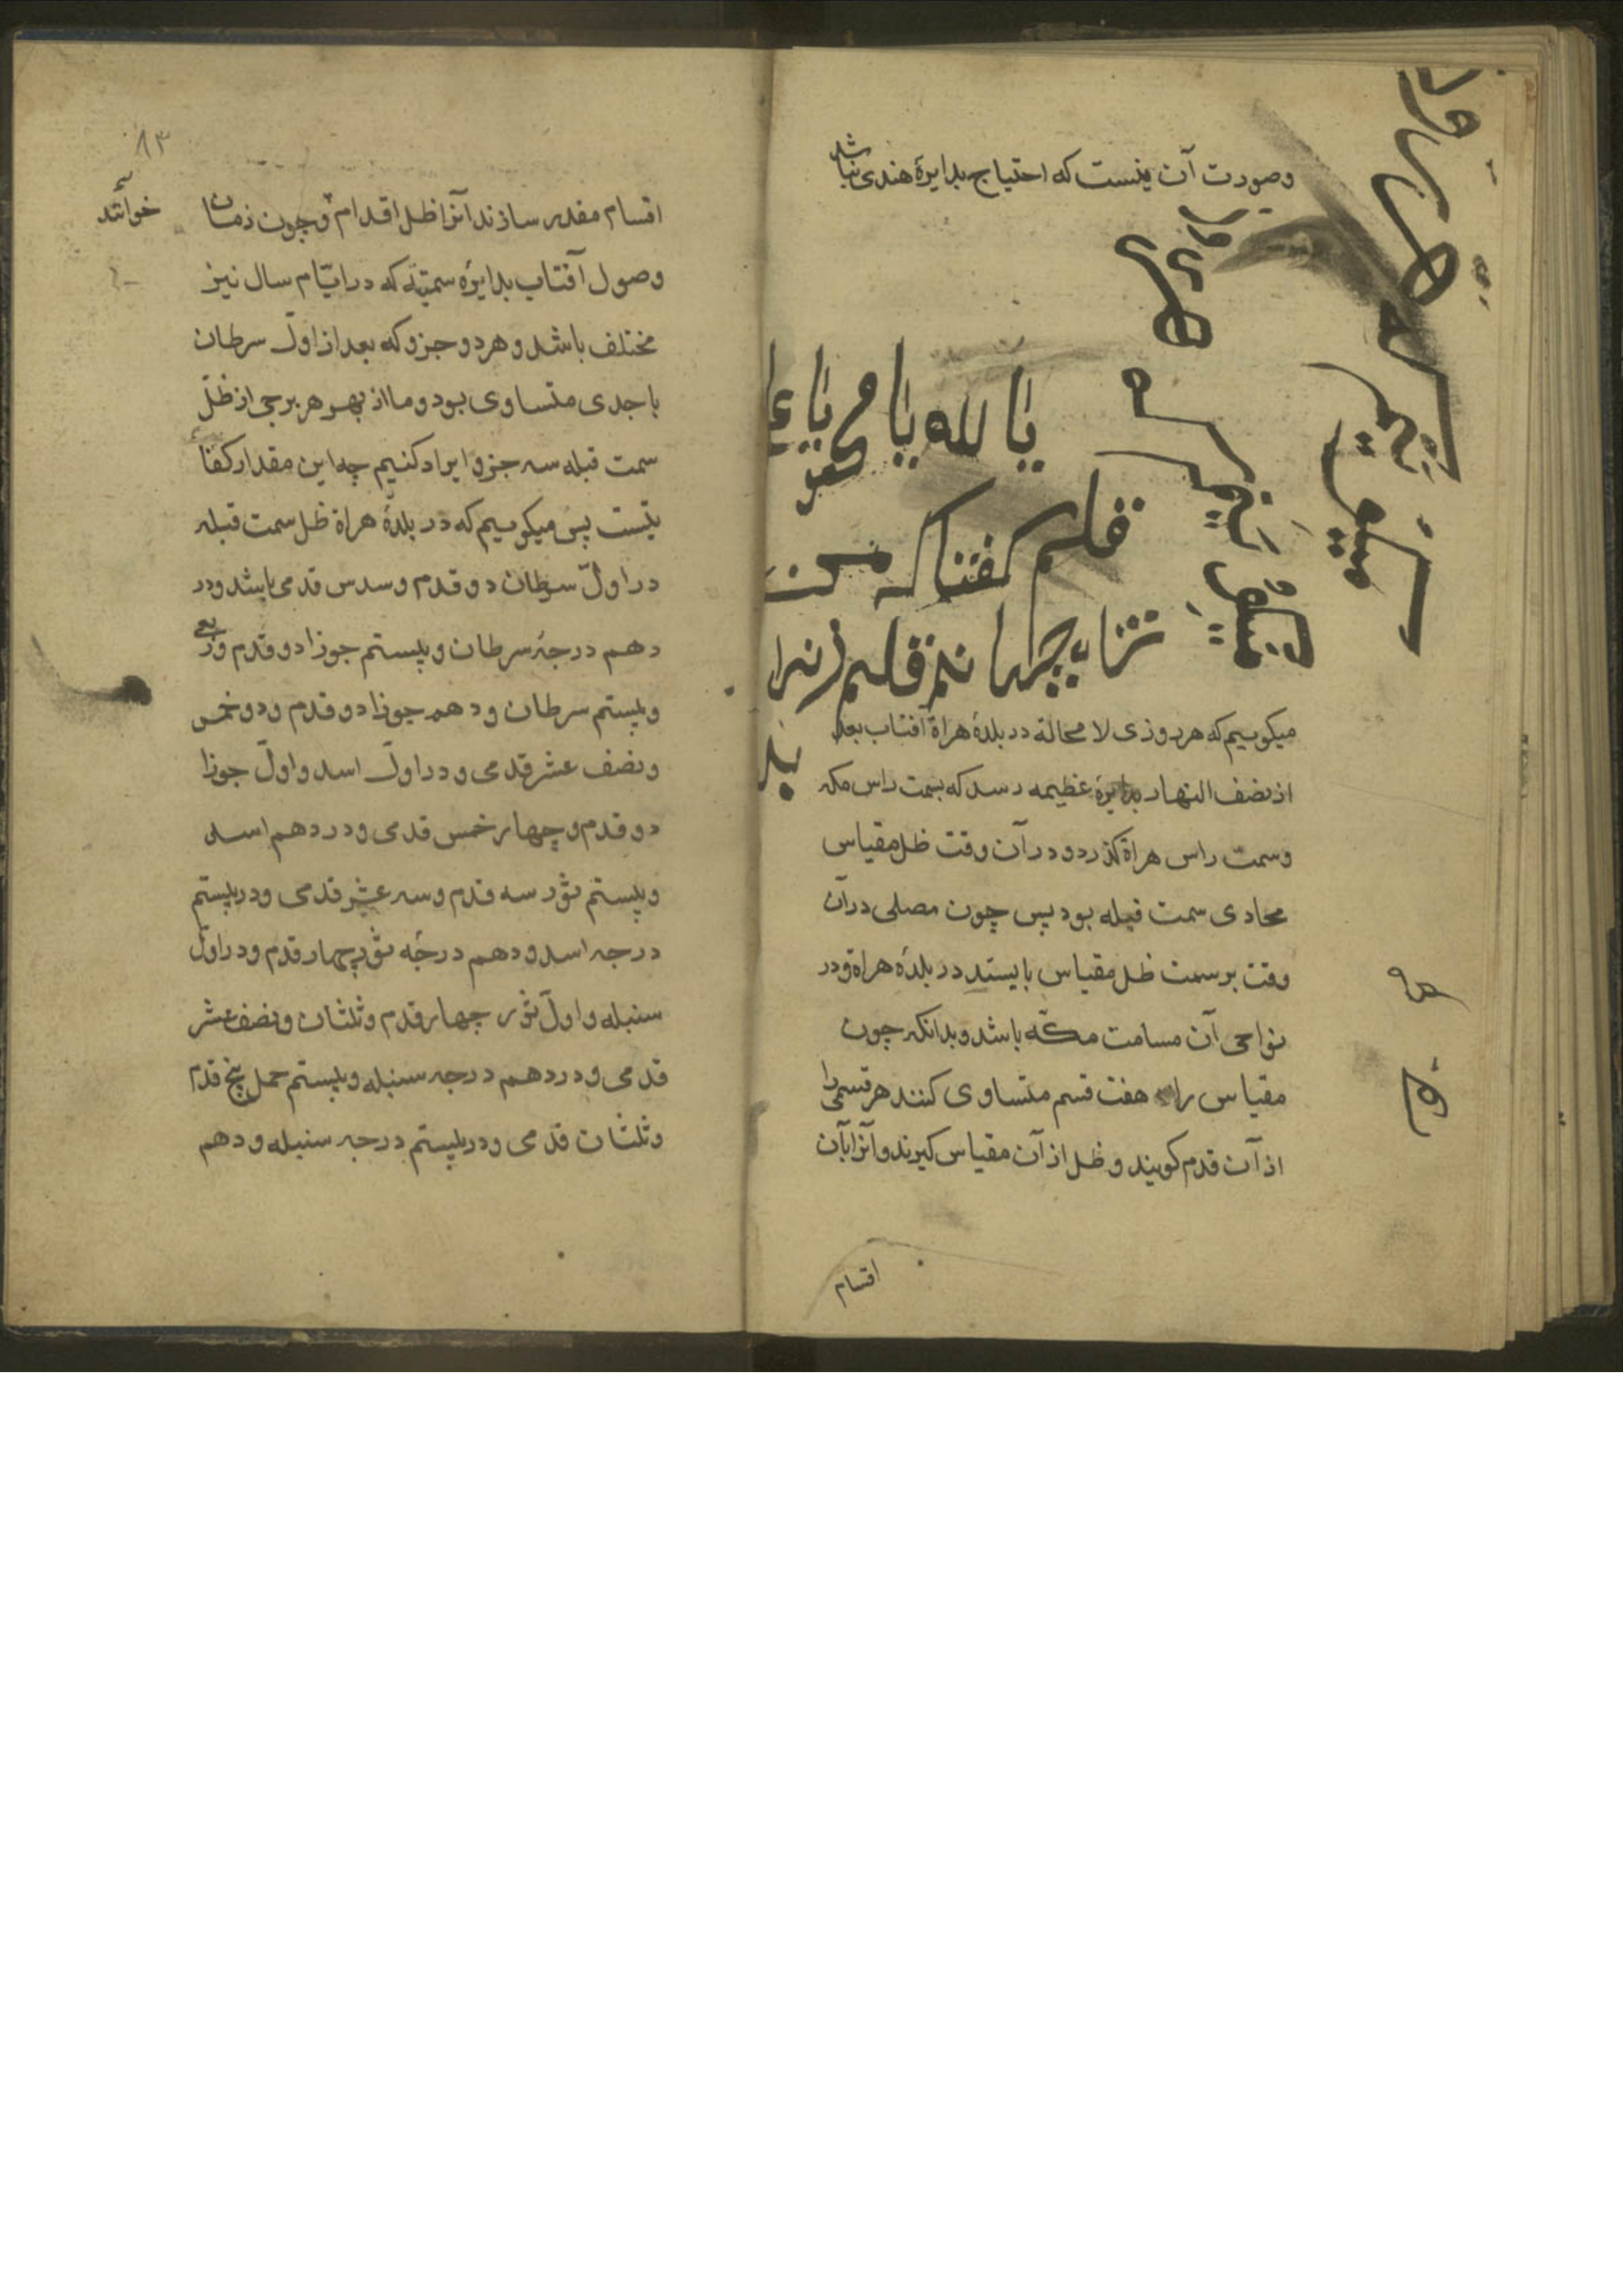 وصورت آن ینست که احتیاج بدایرهٔ هندی نباشد
یا الله یا محمد یا علی
قلم گفتا که من
میکوییم که هر روزی لا محالة در بلدهٔ هراة آفتاب بعد
از نصف النهار بدایرهٔ عظیمه رسد که بسمت راس مکه
وسمت راس هراة کذرد و در آن وقت ظل مقیاس
محادی سمت قبله بود پس چون مصلی در آن
وقت بر سمت ظل مقیاس بایستد در بلدهٔ هراة ودر
نواحی آن مسامت مکّه باشد و بدانکه چون
مقیاس را هفت قسم متساوی کنند هر قسمی را
از آن قدم کویند و ظل از آن مقیاس کیرند و آنرا بآن
اقسام
۸۳
اقسام مقدر سازند آنرا ظل اقدام و چون زمان
خوانند
وصول آفتاب بدایرهٔ سمتیّه که در ایّام سال نیز
مختلف باشد و هر دو جزو که بعد از اولّ سرطان
با جدی متساوی بود و ما از بهر هر برجی از ظلّ
سمت قبله سه جزو ایراد کنیم چه این مقدار کفا
یتست پس میکوییم که در بلدهٔ هراة ظل سمت قبله
در اولّ سرطان دو قدم وسدس قدمی باشد ودر
دهم درجهٔ سرطان و بیستم جوزا دو قدم و ربعی
و بیستم سرطان و دهم جوزا دو قدم و دو خمس
و نصف عشر قدمی و در اولّ اسد و اولّ جوزا
دو قدم و چهار خمس قدمی و در دهم اسد
و بیستم ثور سه قدم و سه عشر قدمی و در بیستم
درجه اسد و دهم درجهٔ ثور چهار قدم و در اولّ
سنبله و اولّ ثور چهار قدم و ثلثان و نصف عشر
قدمی و در دهم درجه سنبله و بیستم حمل پنج قدم
و ثلثان قدمی و در بیستم درجه سنبله و دهم